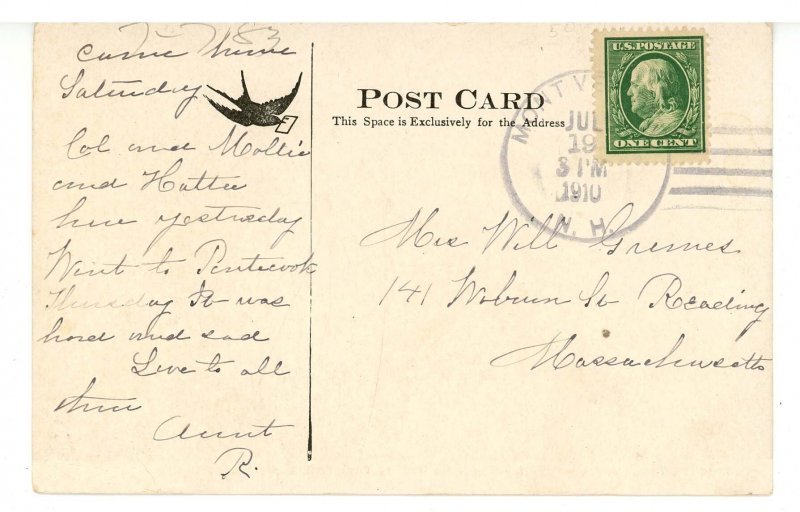 came home
Saturday
Col and Mollie
and Hattie
here yesterday
Went to
Thursday It was
hard and sad
Love to all
thru
Aunt
R.
POST CARD
This Space is Exclusively for the Address
U.S. POSTAGE
ONE CENT
MONT V
JUL
19
3 PM
1910
N. H.
Mrs Will Grimes
141 Woburn St Reading
Massachusetts